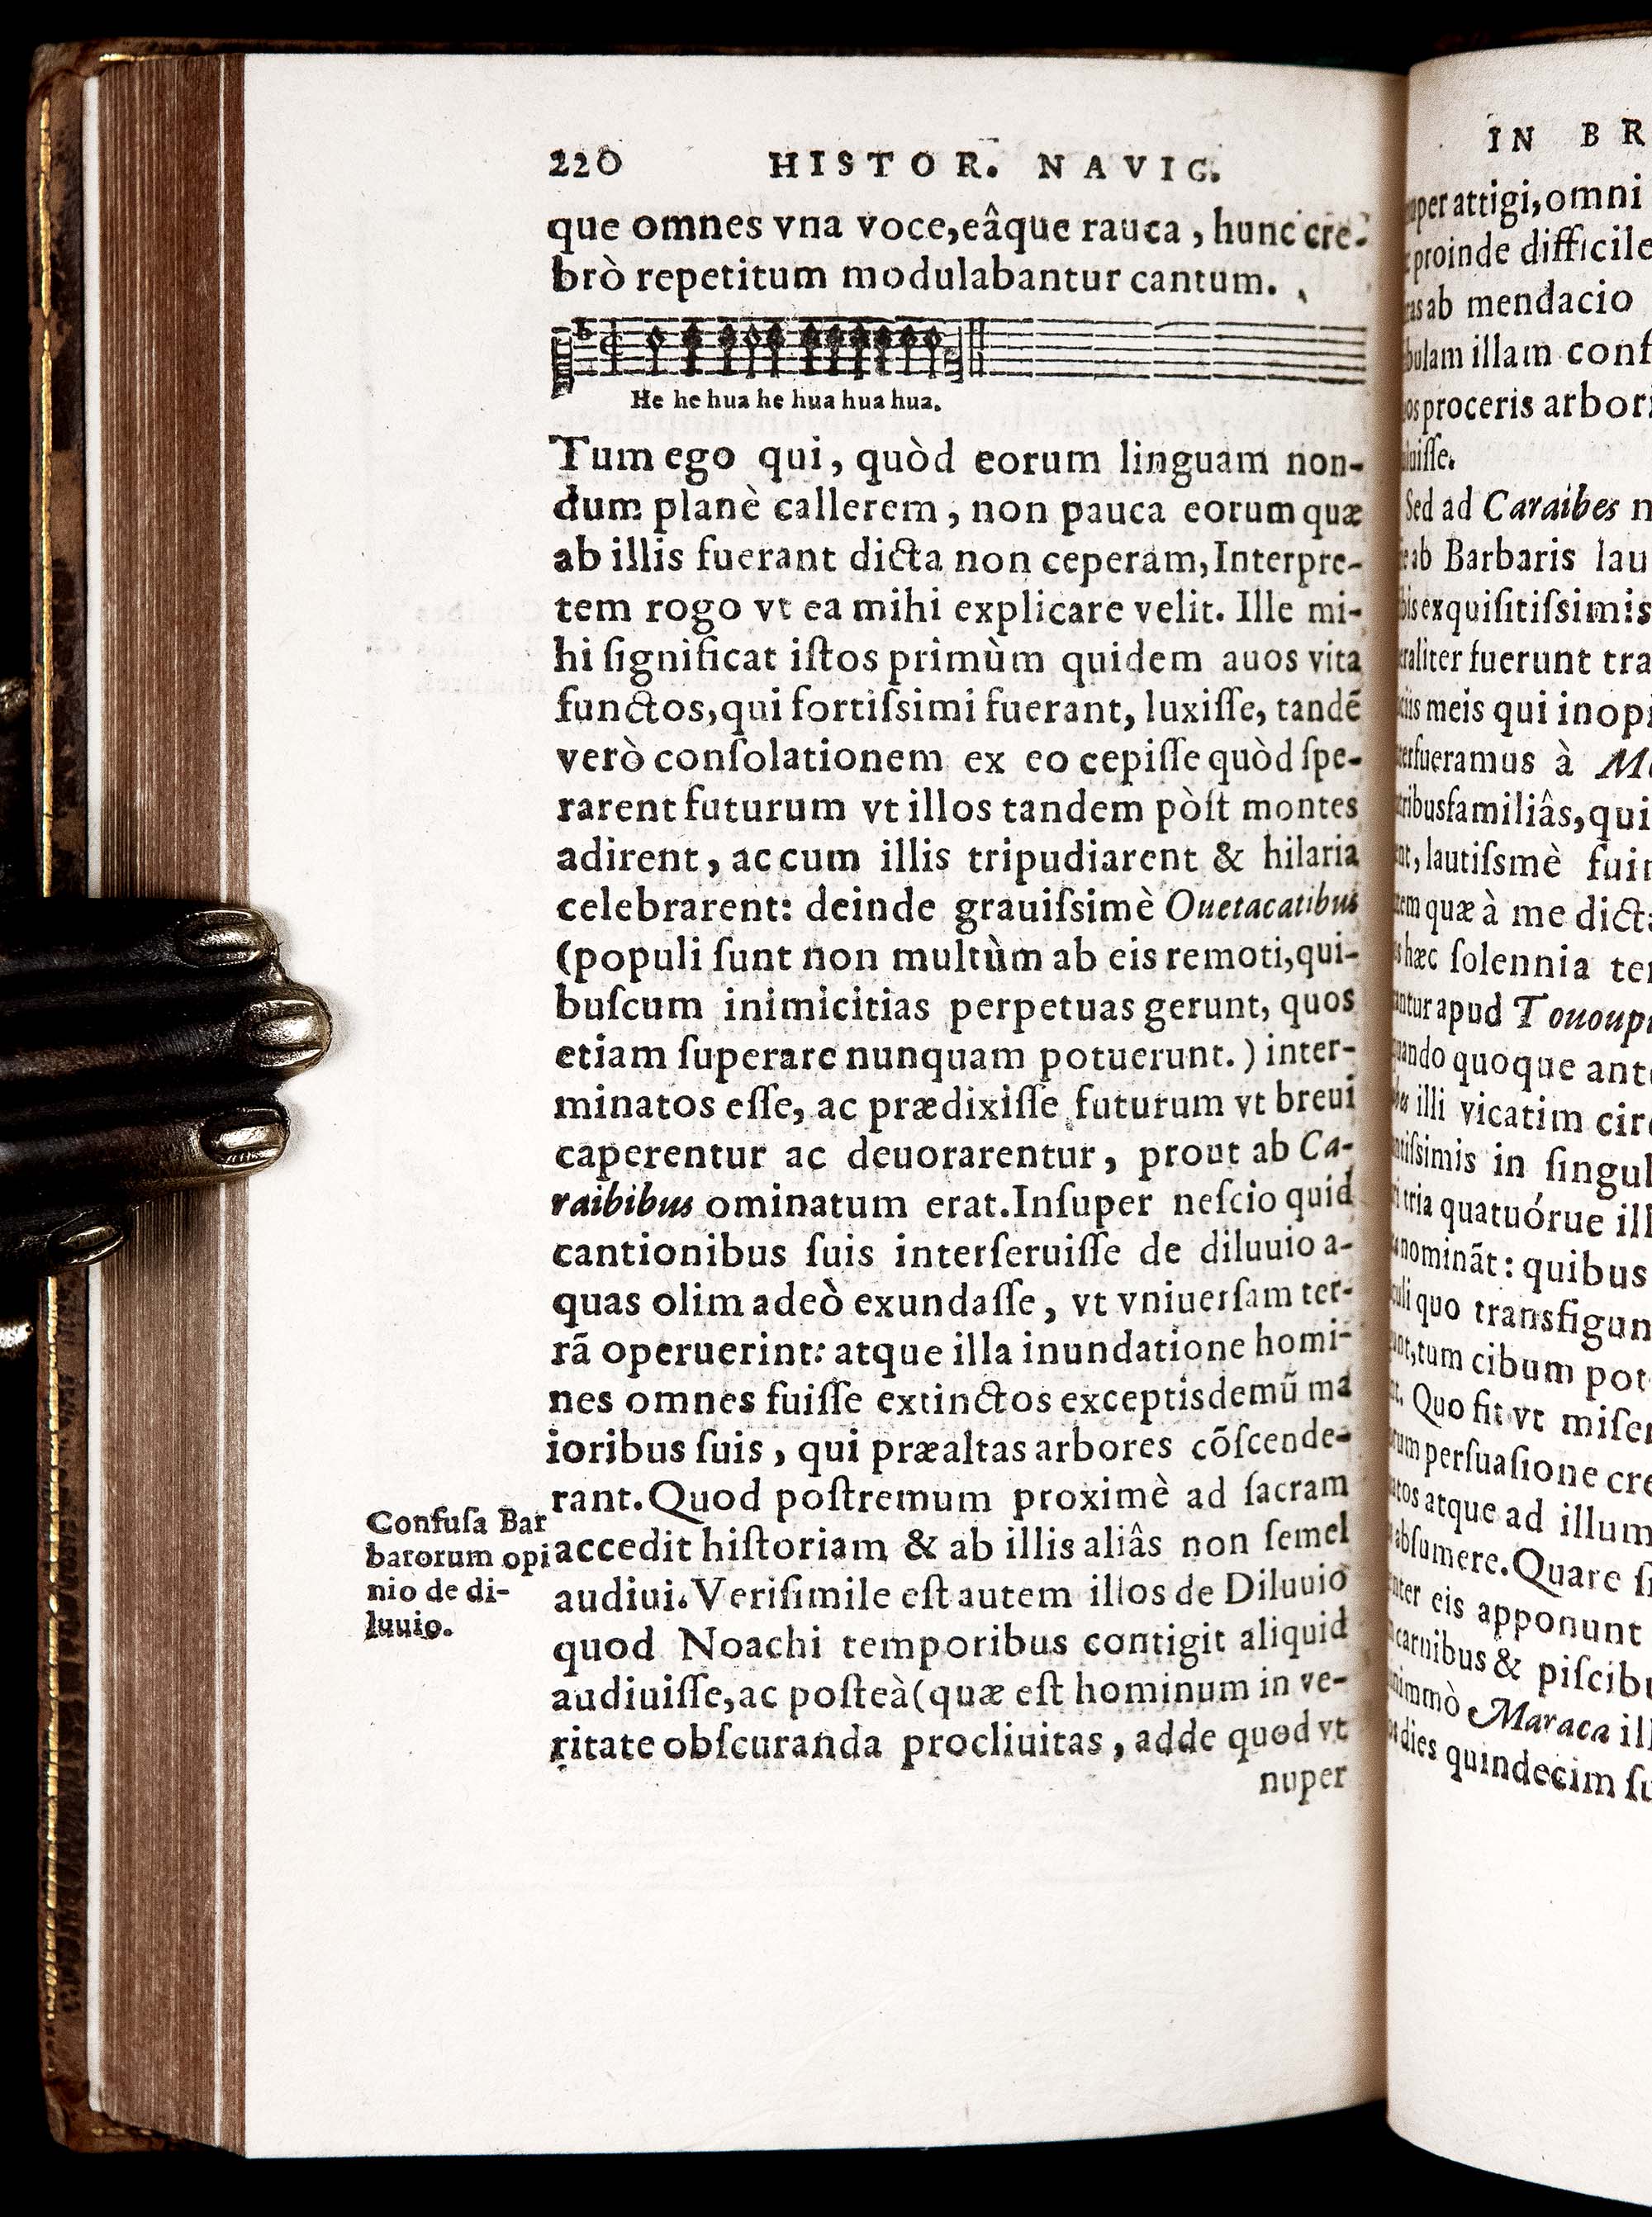 220 HISTOR. NAVIG.
que omnes vna voce,eâque rauca , hunc cre-
brò repetitum modulabantur cantum.
He he hua he hua hua hua.
Tum ego qui, quòd eorum linguam non-
dum planè callerem, non pauca eorum quæ
ab illis fuerant dicta non ceperam, Interpre-
tem rogo vt ea mihi explicare velit. Ille mi-
hi ſignificat iſtos primùm quidem auos vita
functos,qui fortiſsimi fuerant, luxiſſe, tandē
verò conſolationem ex eo cepiſſe quòd ſpe-
rarent futurum vt illos tandem pòſt montes
adirent, ac cum illis tripudiarent & hilaria
celebrarent: deinde grauiſsimè Ouetacatibus
(populi ſunt non multùm ab eis remoti,qui-
buſcum inimicitias perpetuas gerunt, quos
etiam ſuperare nunquam potuerunt.) inter-
minatos eſſe, ac prædixiſſe futurum vt breui
caperentur ac deuorarentur, prout ab Ca-
raibibus ominatum erat. Inſuper neſcio quid
cantionibus ſuis interſeruiſſe de diluuio a-
quas olim adeò exundaſſe, vt vniuerſam ter-
rā operuerint: atque illa inundatione homi-
nes omnes fuiſſe extinctos exceptis demū ma
ioribus ſuis, qui præaltas arbores cōſcende-
rant. Quod poſtremum proximè ad ſacram
accedit hiſtoriam & ab illis aliâs non ſemel
audiui. Veriſimile eſt autem illos de Diluuio
quod Noachi temporibus contigit aliquid
audiuiſſe, ac poſteà (quæ eſt hominum in ve-
ritate obſcuranda procliuitas, adde quod vt
nuper
Confuſa Bar
barorum opi
nio de di-
luuio.
IN BR
attigi, omni
proinde difficile
ab mendacio
illam conf
proceris arbori
Sed ad Caraibes n
ab Barbaris lau
exquiſitiſsimis
fuerunt tra
meis qui inopi
fueramus à M
familiâs, qui
lautiſsmè fuir
quæ à me dict
hæc ſolennia te
apud Tououp
quoque ant
illi vicatim circ
in ſingul
tria quatuórue ill
nomināt: quibus
quo transfigun
tum cibum pot
Quo fit vt miſer
perſuaſione cre
atque ad illum
abſumere. Quare ſi
eis apponunt
carnibus & piſcib
Maraca ill
dies quindecim ſu